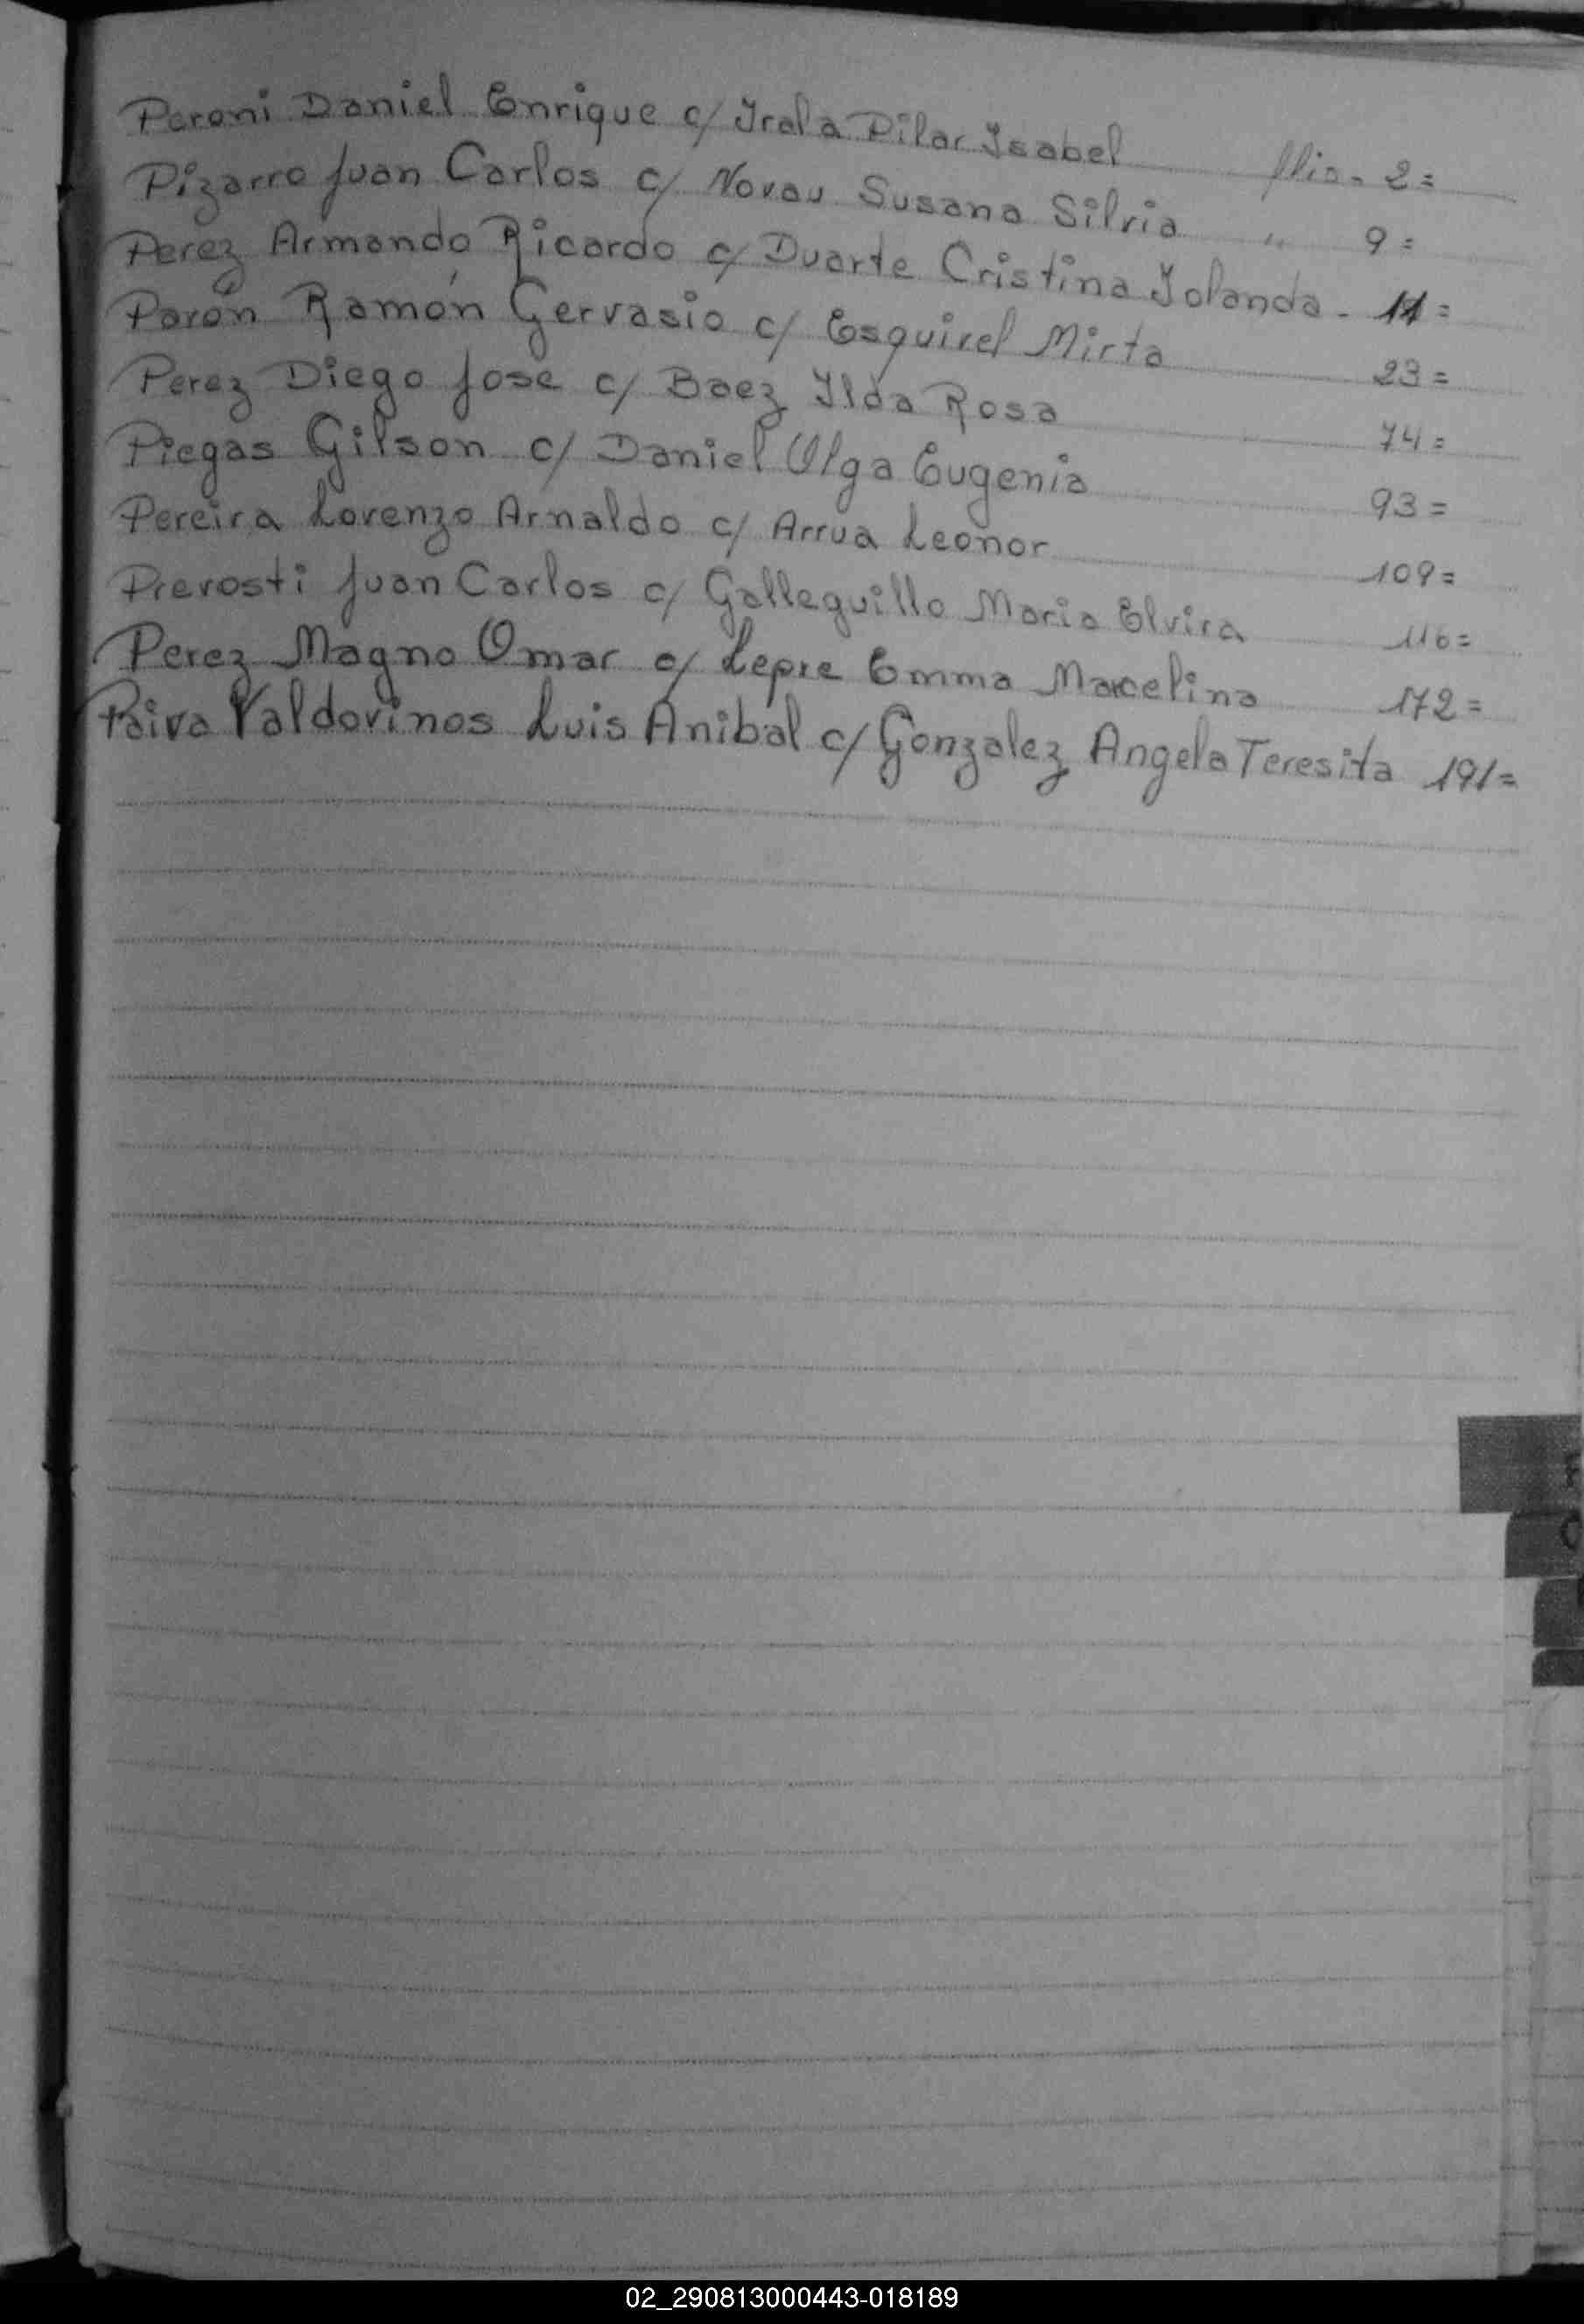 Peroni Daniel Enrique c/ Irala Pilar Isabel flio. 2=
Pizarro Juan Carlos c/ Novau Susana Silvia " 9=
Perez Armando Ricardo c/ Duarte Cristina Yolanda - 11=
Parón Ramón Gervasio c/ Esquivel Mirta 23=
Perez Diego Jose c/ Baez Ilda Rosa 74=
Piegas Gilson c/ Daniel Olga Eugenia 93=
Pereira Lorenzo Arnaldo c/ Arrua Leonor 109=
Prevosti Juan Carlos c/ Galleguillo Maria Elvira 116=
Perez Magno Omar c/ Lepre Emma Marcelina 172=
Paiva Valdovinos Luis Anibal c/ Gonzalez Angela Teresita 191=
02_290813000443-018189